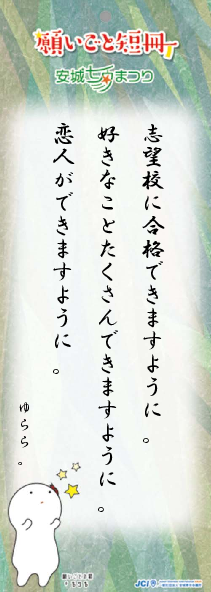 願いごと短冊
安城七夕まつり
志望校に合格できますように。
好きなことたくさんできますように。
恋人ができますように。
ゆらら。
JCI